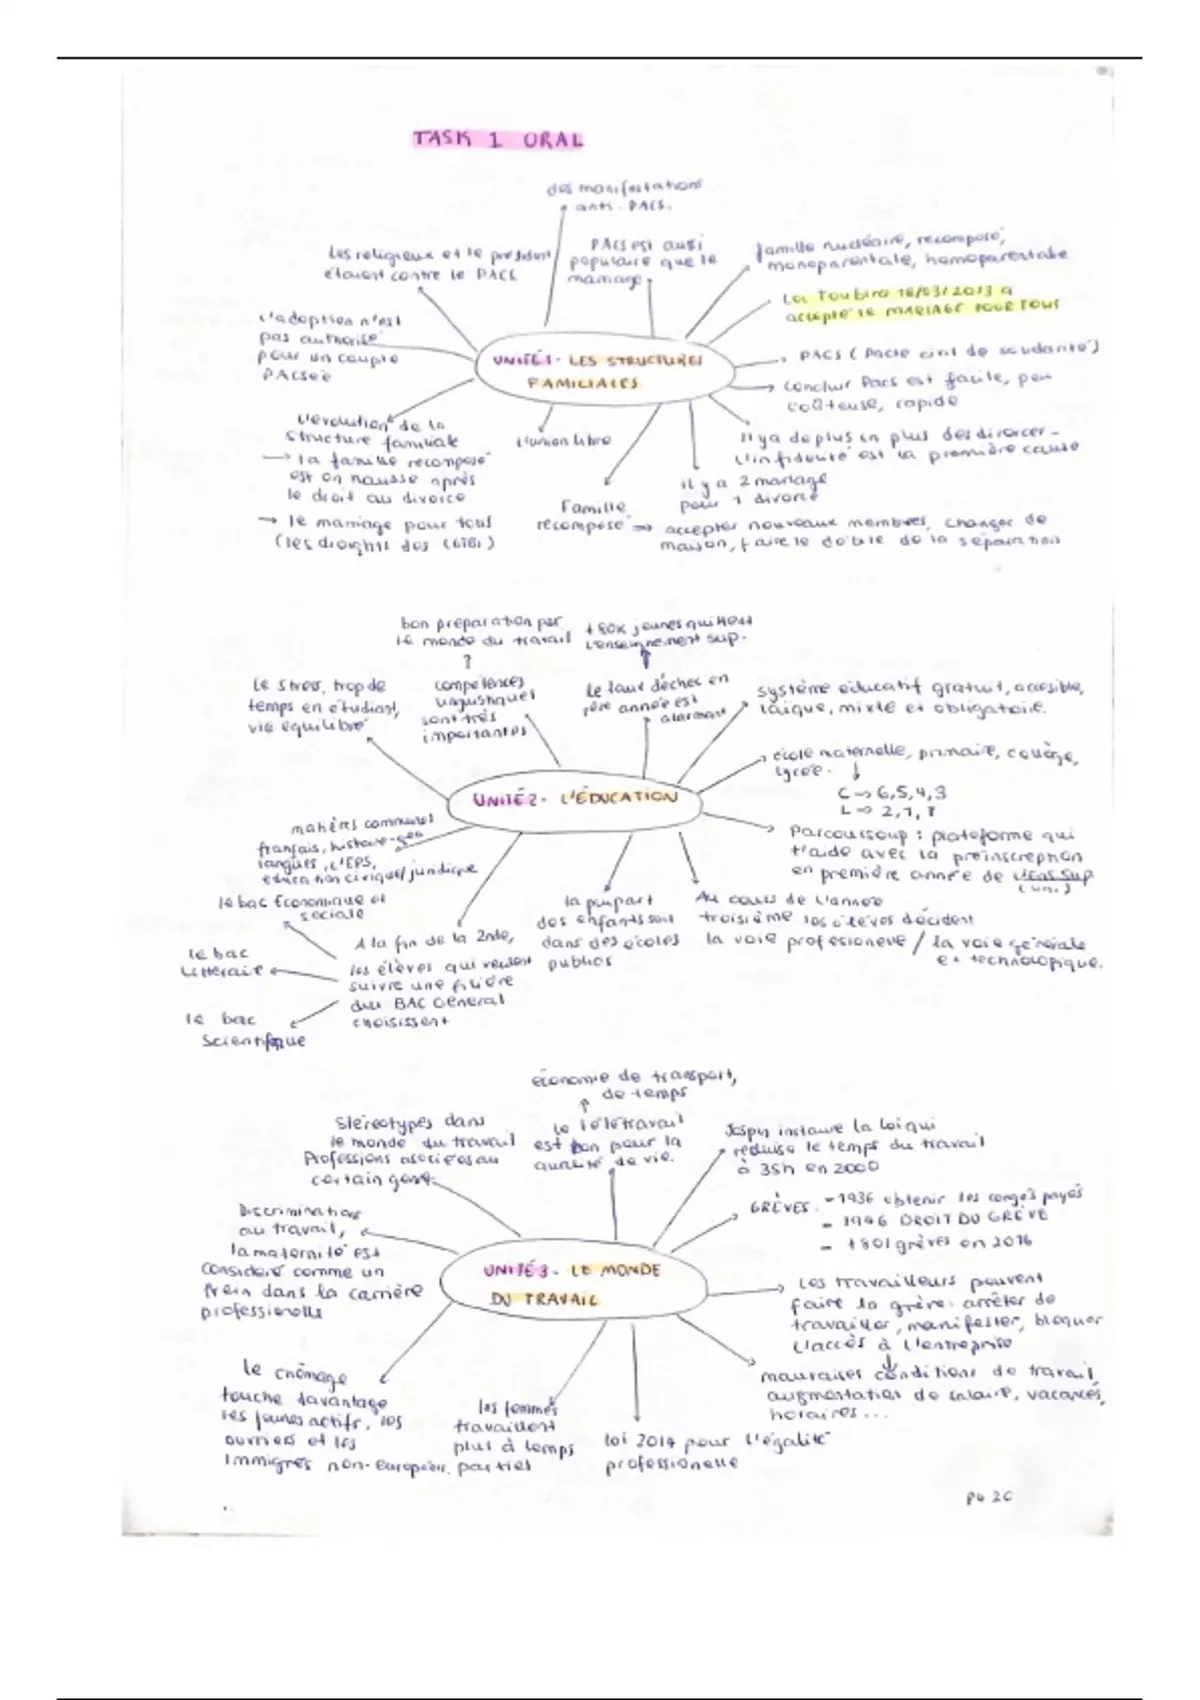 TASK 1 ORAL
des manifestations
anti-PACS.
Les religieux et le président
étaient contre le PACS
PACS est aussi
populaire que le
mariage
famille nucléaire, recomposé,
monoparentale, homoparentale
Loi Toubira 18/03/2013 a
accepté le MARIAGE POUR TOUS
L'adoption n'est
pas authorisé
pour un couple
PACSée
UNITÉ 1 - LES STRUCTURES
FAMILIALES
PACS (Pacte civil de solidarité)
Concluir Pacs est facile, peu
coûteuse, rapide
L'évolution de la
structure familiale
→ la famille recomposé
est en hausse après
le droit au divorce
→ le mariage pour tous
(les droights des LGTBI)
L'union libre
Il y a de plus en plus des divorcer-
L'infidélité est la première cause
il y a 2 mariage
pour 1 divorce
Famille
recomposé ⇒ accepter nouveaux membres, changer de
maison, faire le double de la séparation
bon préparation par
le monde du travail
?
+80K jeunes quittent
l'enseignement sup.
Le stress, trop de
temps en étudiant,
vie équilibré
compétences
linguistiques
sont très
importantes
le taux déches en
1ère année est
alarmant
système éducatif gratuit, accesible,
laïque, mixte et obligatoire.
école maternelle, primaire, collège,
lycée.
C → 6,5,4,3
L → 2,1,T
UNITÉ 2 - L'ÉDUCATION
matières communes
français, histoire-géo
langues, L'EPS,
éducation civique/juridique
Parcoussoup : plateforme qui
t'aide avec la préinscreption
en première année de l'ens sup
(uni.)
le bac Économique et
sociale
le bac
Littéraire
le bac
Scientifique
A la fin de la 2nde,
les élèves qui veulent
suivre une filière
du BAC General
choisissent
la plupart
des enfants sont
dans des écoles
publics
Au cours de l'année
troisième les élèves décident
la voie profesioneve / la voie générale
et technologique.
économie de transport,
de temps
Stéréotypes dans
le monde du travail
Professions asociées au
certain genre
le télétravail
est bon pour la
qualité de vie.
Jospin instaure la loi qui
réduise le temps du travail
à 35h en 2000
GRÈVES. - 1936 obtenir les congés payés
- 1946 DROIT DU GRÈVE
- +801 grèves en 2016
Discrimination
au travail,
la maternité est
considéré comme un
frein dans la carrière
professionelle
UNITÉ 3 - LE MONDE
DU TRAVAIL
Les travailleurs peuvent
faire la grève: arrêter de
travailler, manifester, bloquer
l'accès à l'entreprise
mauvaises conditions de travail,
augmentation de salaire, vacances,
horaires...
le chômage
touche davantage
les jeunes actifs, les
ouvriers et les
immigrés non-européen.
les femmes
travaillent
plus à temps
partiel
loi 2014 pour l'égalité
professionelle